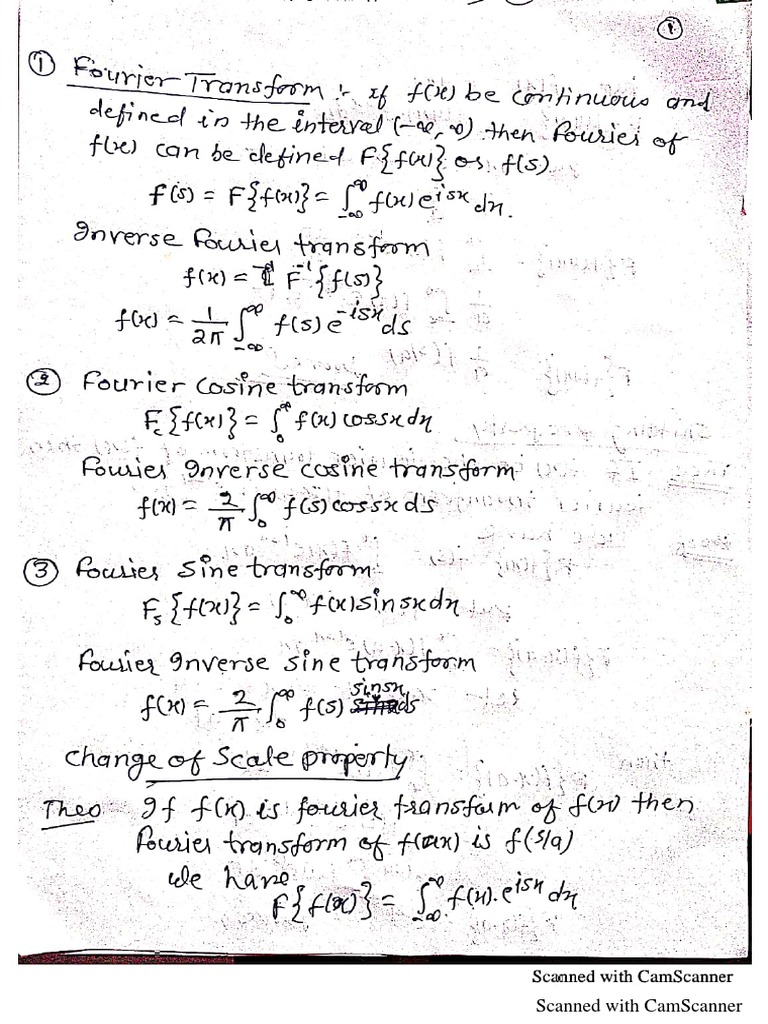 ①
① Fourier Transform :- If f(x) be continuous and
defined in the interval (-∞, ∞) then Fourier of
f(x) can be defined F{f(x)} or f(s)
f(s) = F{f(x)} = ∫_{-∞}^{∞} f(x) e^{isx} dx.
Inverse Fourier transform
f(x) = F^{-1}{f(s)}
f(x) = 1/2π ∫_{-∞}^{∞} f(s) e^{-isx} ds
② Fourier cosine transform
F_c{f(x)} = ∫_0^∞ f(x) cossx dx
Fourier Inverse cosine transform
f(x) = 2/π ∫_0^∞ f(s) cossx ds
③ Fourier Sine transform
F_s{f(x)} = ∫_0^∞ f(x) sinsx dx
Fourier Inverse sine transform
f(x) = 2/π ∫_0^∞ f(s) sinsx ds
Change of Scale property
Theo If f(x) is fourier transform of f(x) then
Fourier transform of f(ax) is f(s/a)
We have
F{f(x)} = ∫_{-∞}^{∞} f(x). e^{isx} dx
Scanned with CamScanner
Scanned with CamScanner